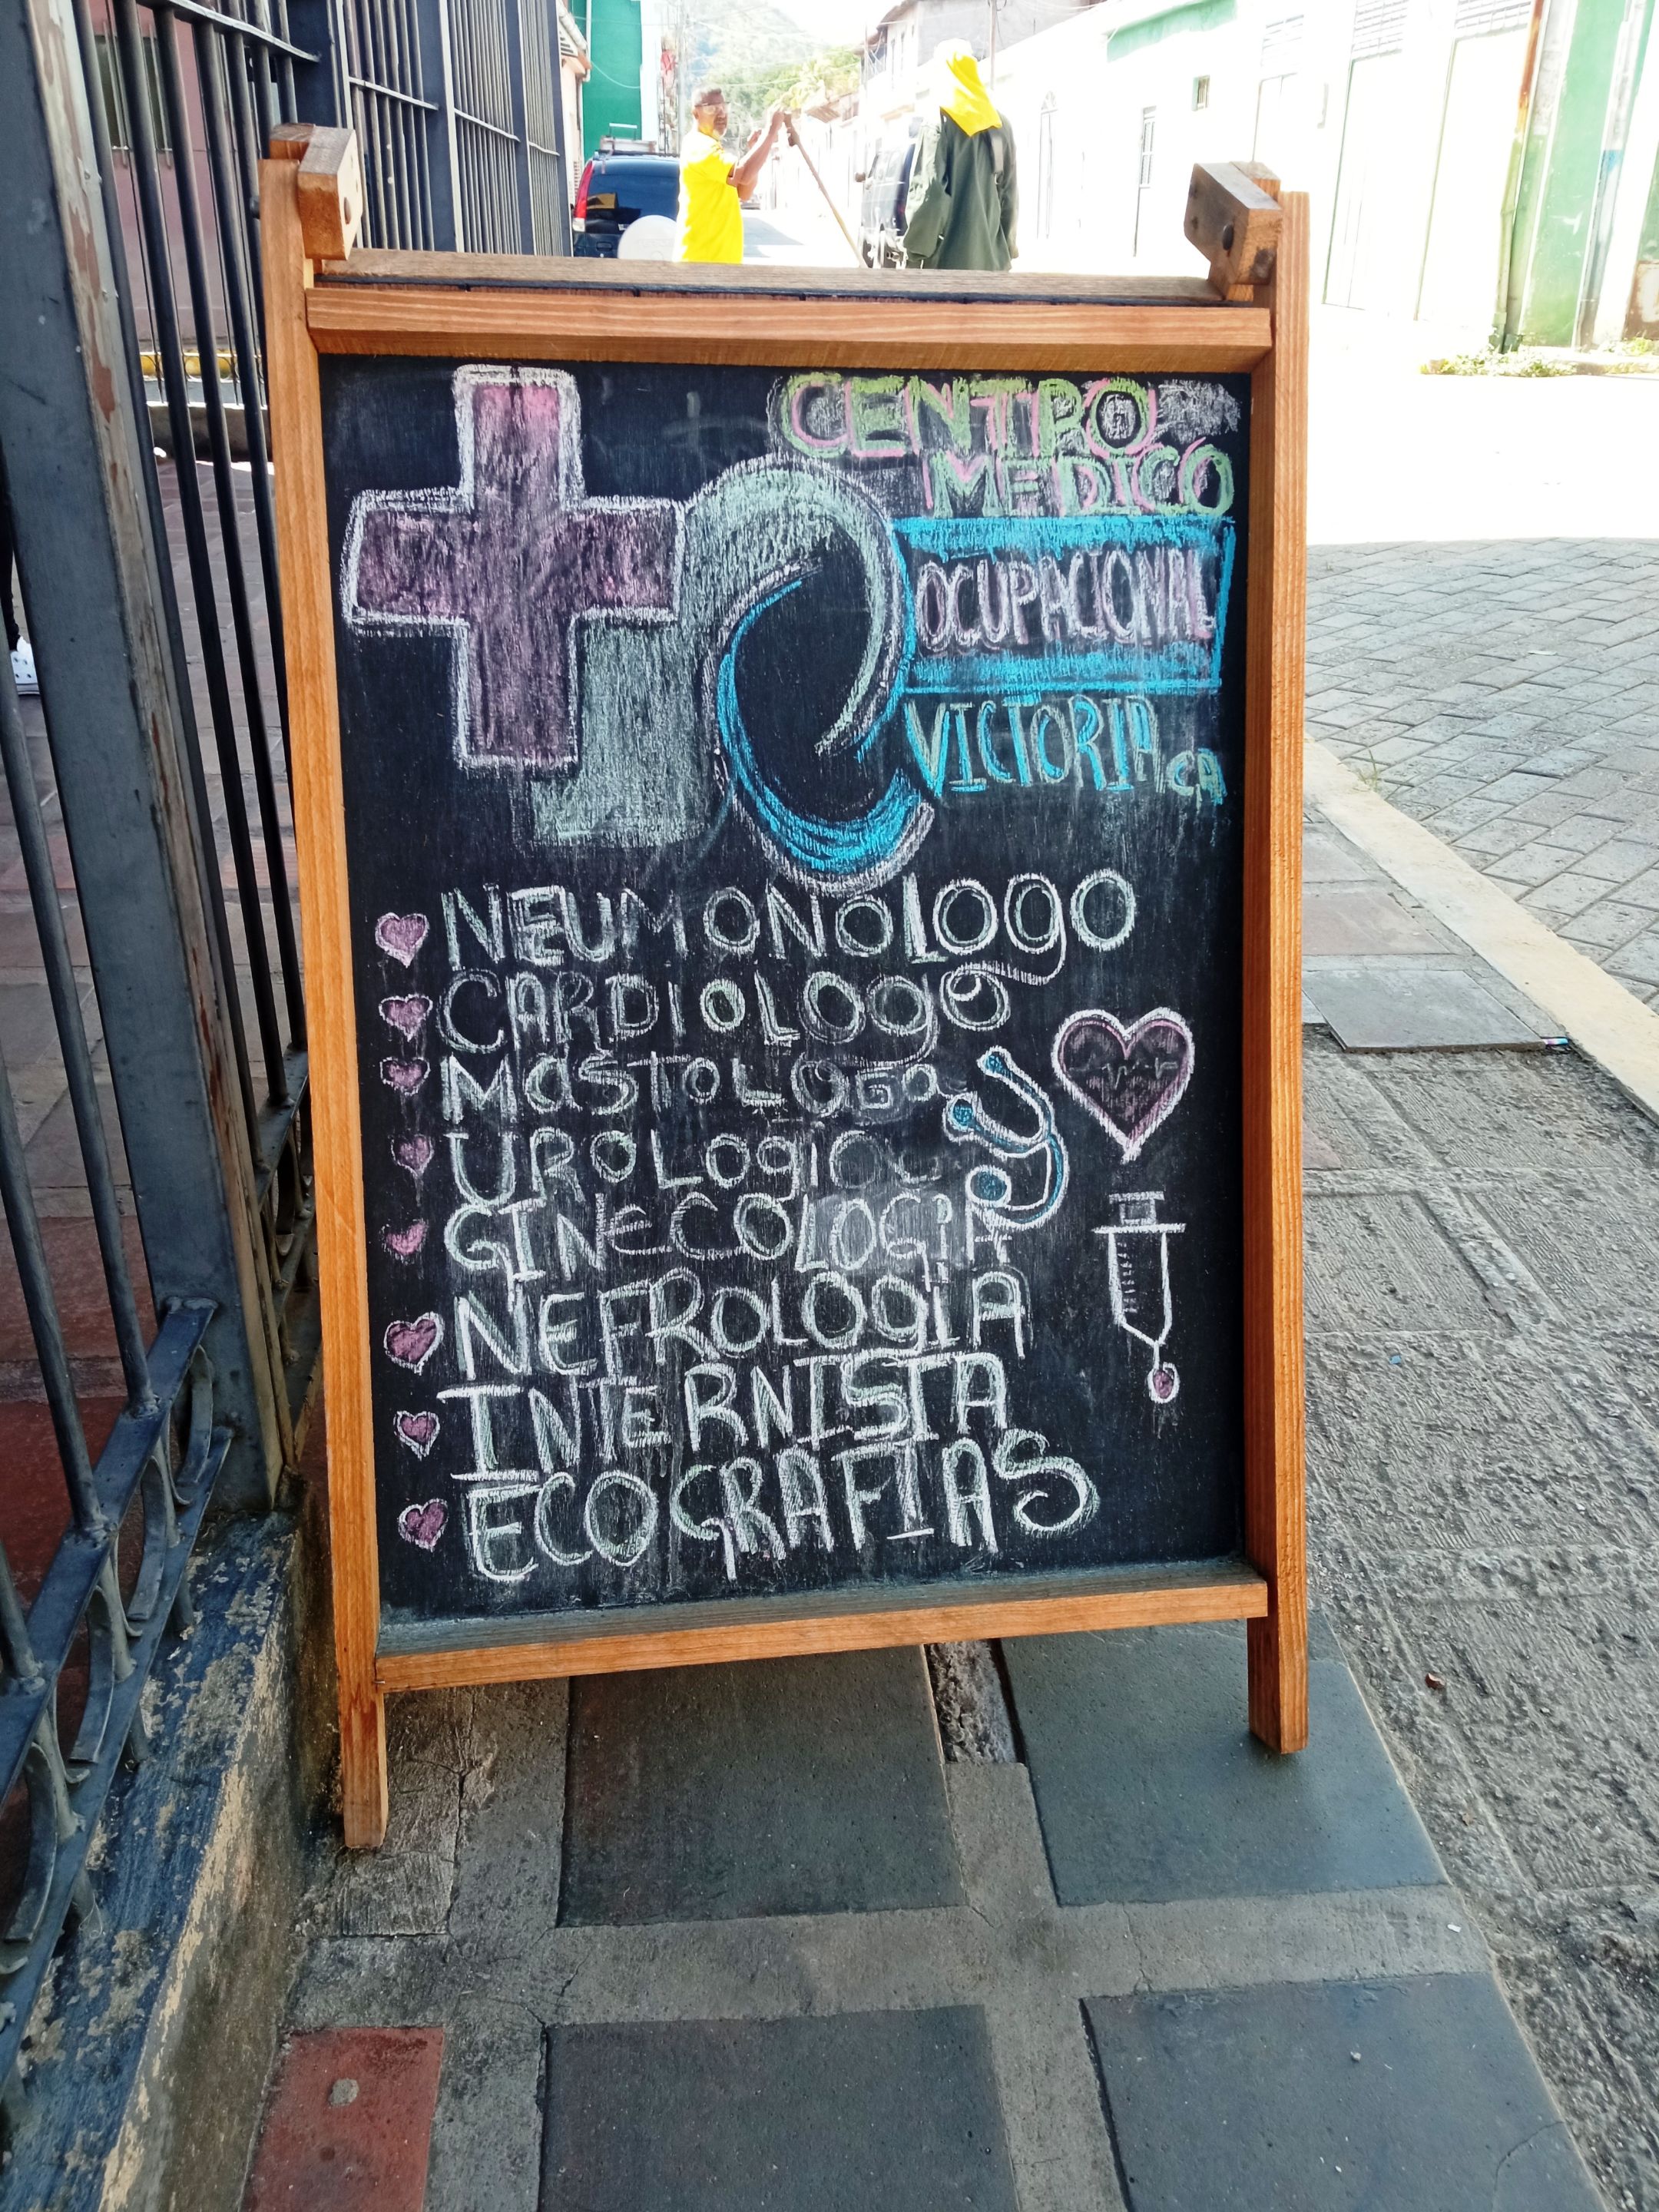 CENTRO
MEDICO
OCUPACIONAL
VICTORIA, CA
NEUMONOLOGO
CARDIOLOGO
MaSTOLOGO
UROLOgIC
GINeCOLOGIA
NEFROLOGIA
INTERNISTA
ECOGRAFIAS